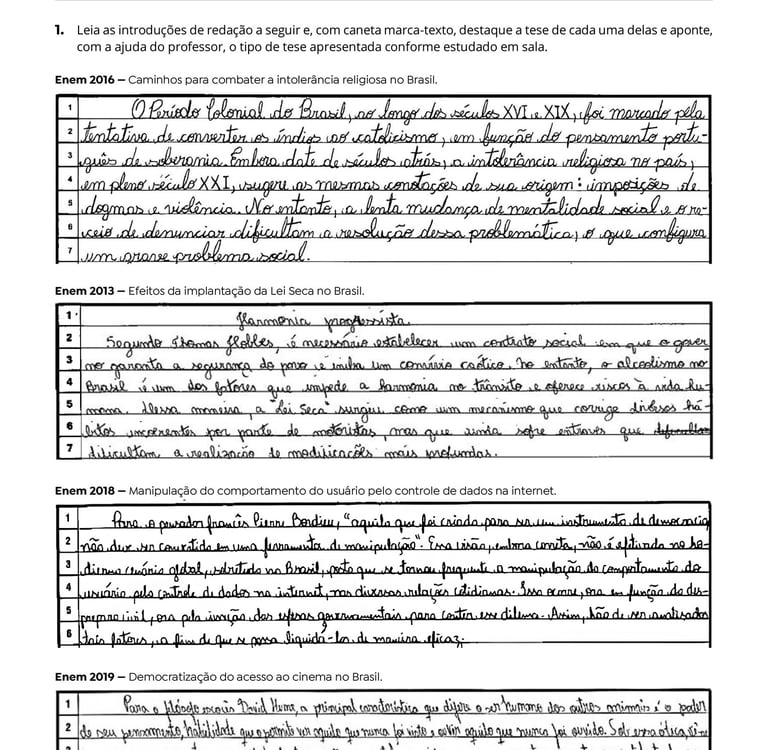 1. Leia as introduções de redação a seguir e, com caneta marca-texto, destaque a tese de cada uma delas e aponte,
com a ajuda do professor, o tipo de tese apresentada conforme estudado em sala.
Enem 2016 — Caminhos para combater a intolerância religiosa no Brasil.
1 O Período Colonial do Brasil, ao longo dos séculos XVI e XIX, foi marcado pela
2 tentativa de converter os índios ao catolicismo, em função do pensamento portu-
3 guês de soberania. Embora date de séculos atrás, a intolerância religiosa no país,
4 em pleno século XXI, sugere as mesmas conotações de sua origem: imposições de
5 dogmas e violência. No entanto, a lenta mudança de mentalidade social e o re-
6 ceio de denunciar dificultam a resolução dessa problemática, o que configura
7 um grave problema social.
Enem 2013 — Efeitos da implantação da Lei Seca no Brasil.
1 Harmonia progressista.
2 Segundo Thomas Hobbes, é necessário estabelecer um contrato social em que o gover-
3 no garanta a segurança do povo e iniba um convívio caótico. No entanto, o alcoolismo no
4 Brasil é um dos fatores que impede a harmonia no trânsito e oferece riscos à vida hu-
5 mana. Dessa maneira, a "Lei Seca" surgiu como um mecanismo que corrige diversos há-
6 bitos incoerentes por parte de motoristas, mas que ainda sofre entraves que
7 dificultam a realização de modificações mais profundas.
Enem 2018 — Manipulação do comportamento do usuário pelo controle de dados na internet.
1 Para o pensador francês Pierre Bordieu, "aquilo que foi criado para ser um instrumento de democracia
2 não deve ser convertido em uma ferramenta de manipulação". Essa visão, embora correta, não é efetivada no ho-
3 dierno cenário global, sobretudo no Brasil, posto que se tornou frequente a manipulação do comportamento do
4 usuário pelo controle de dados na internet, nas diversas relações cotidianas. Isso ocorre, ora em função do des-
5 preparo civil, ora pela inação das esferas governamentais para conter esse dilema. Assim, hão de ser analisados
6 tais fatores, a fim de que se possa liquidá-los de maneira eficaz.
Enem 2019 — Democratização do acesso ao cinema no Brasil.
1 Para o filósofo escocês David Hume, a principal característica que difere o ser humano dos outros animais é o poder
2 de seu pensamento, habilidade que o permite ver aquilo que nunca foi visto e ouvir aquilo que nunca foi ouvido. Sob essa ótica, vê-